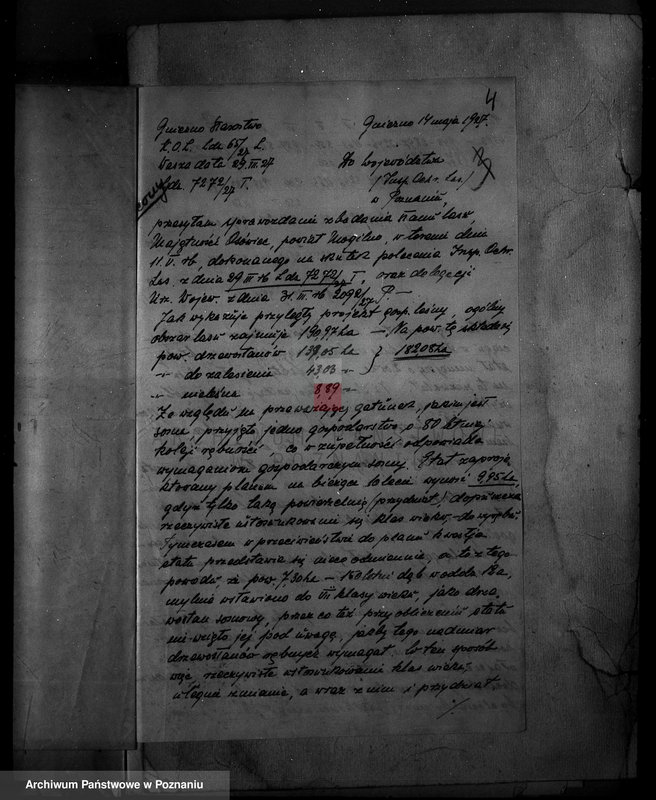 4
Gniezno Starostwo Gniezno 14 maja 1927.
K.O.L. Ldz 65/27 L.
Wasza data 29.III.27 Do Województwa
Ldz. 7272/27 T. (Insp. Ochr. Las.)
w Poznaniu,
przesyłam sprawozdanie z badania stanu lasu,
Majętności powiat Mogilno, w terenie dnia
11.V. rb, dokonanego na skutek polecenia Insp. Ochr.
Las. z dnia 29 III rb Ldz 7272/27 T, oraz delegacji
Urz. Wojew. z dnia 31. III. rb 2092/27 P. —
Jak wykazuje przyległy projekt gosp. leśny, ogólny
obszar lasu zajmuje 190,97 ha — Na pow. tę składają
pow. drzewostanów 139,05 ha } 182,08 ha
" do zalesienia 43,03 "
" nieleśna 8,89 "
Ze względu na przeważający gatunek, jakim jest
sosna, przyjęto jedno gospodarstwo, o 80 letniej
kolei rębności, co w zupełności odpowiada
wymaganiom gospodarczym sosny. Etat zapropo-
nowany planem na bieżące 10 lecie wynosi 9,95 ha,
gdyż tylko taką powierzchnię (przydział) dopuszcza
rzeczywiste ustosunkowanie się klas wieku do wyrębu.
Tymczasem w przeciwieństwie do planu kwestja
etatu przedstawia się nieco odmiennie, a to z tego
powodu że pow. 7,30 ha — 150 letni dąb w oddz. 18a,
mylnie wstawiono do VII klasy wieku, jako drze-
wostan sosnowy, przez co też przy obliczeniu etatu
nie wzięto jej pod uwagę, jakby tego nadmiar
drzewostanów rębnych wymagał. W ten sposób
więc, rzeczywiste ustosunkowanie klas wieku,
ulegnie zmianie, a wraz z nim i przydział.
./.
Archiwum Państwowe w Poznaniu